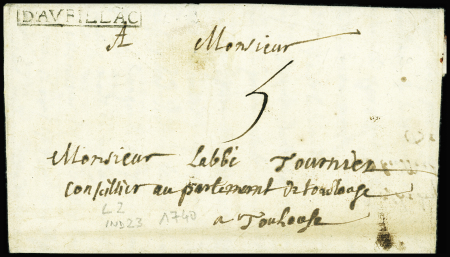 D'AVRILLAC
A Monsieur
5
Monsieur Labbé Tournier
Conseillier au parlement de toulouse
a Toulouse
L2
IND 23 1740